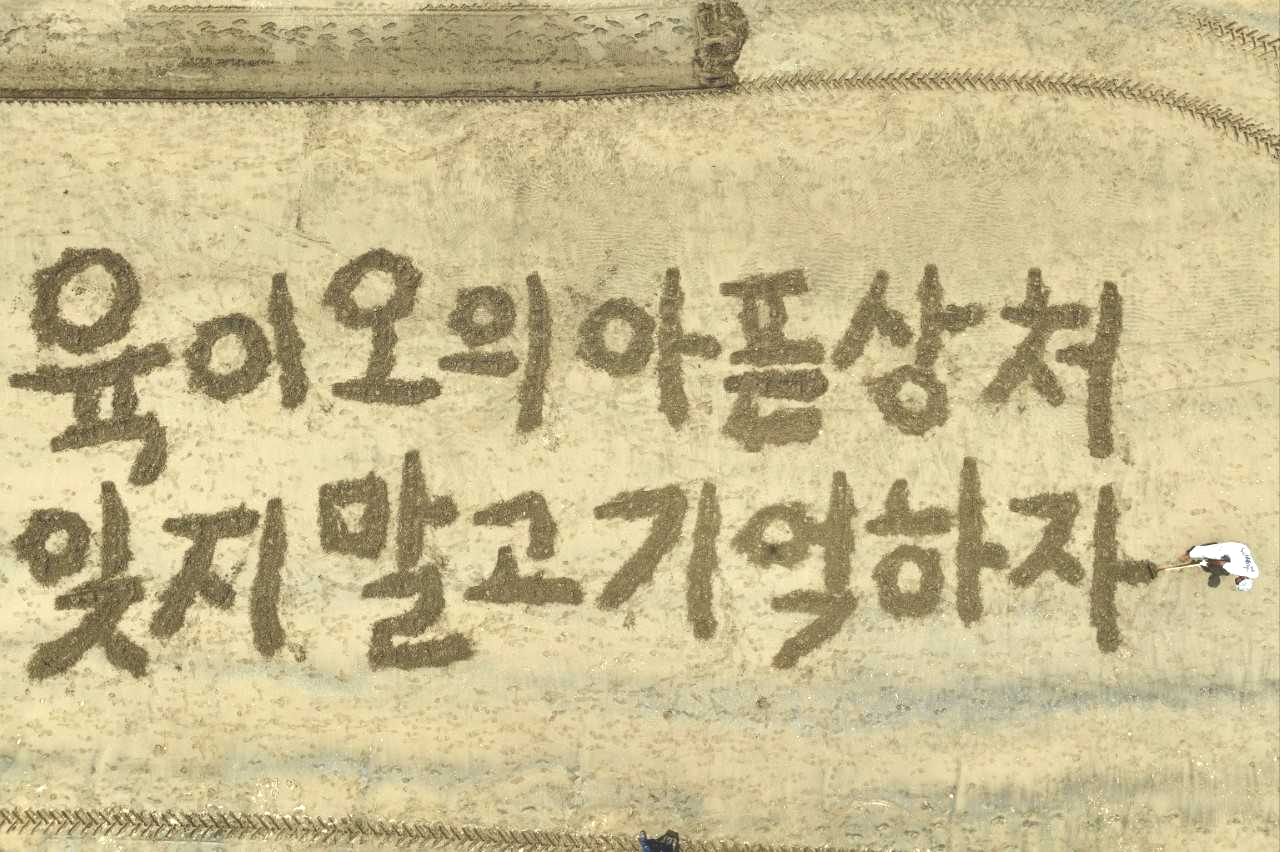 육이오의 아픈상처
잊지말고 기억하자